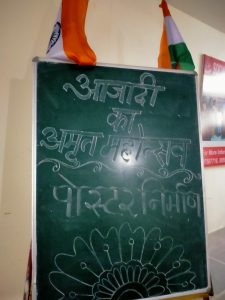 आजादी
का
अमृत महोत्सव
पोस्टर निर्माण